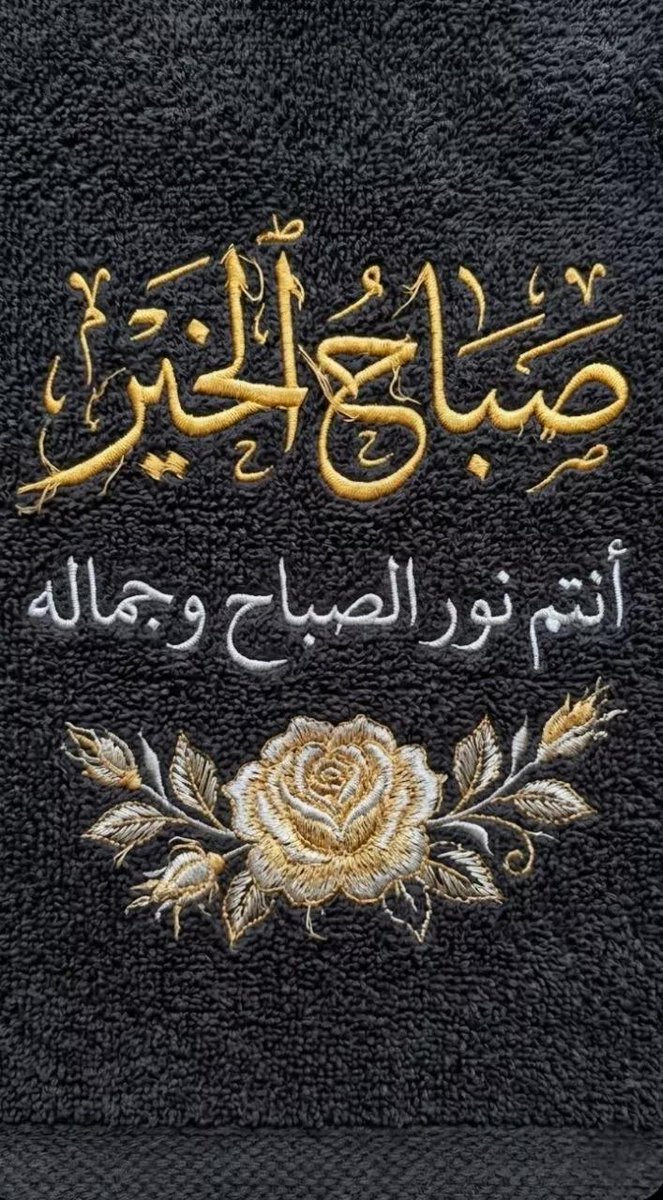 صَبَاحُ الخَيْر
أنتم نور الصباح وجماله